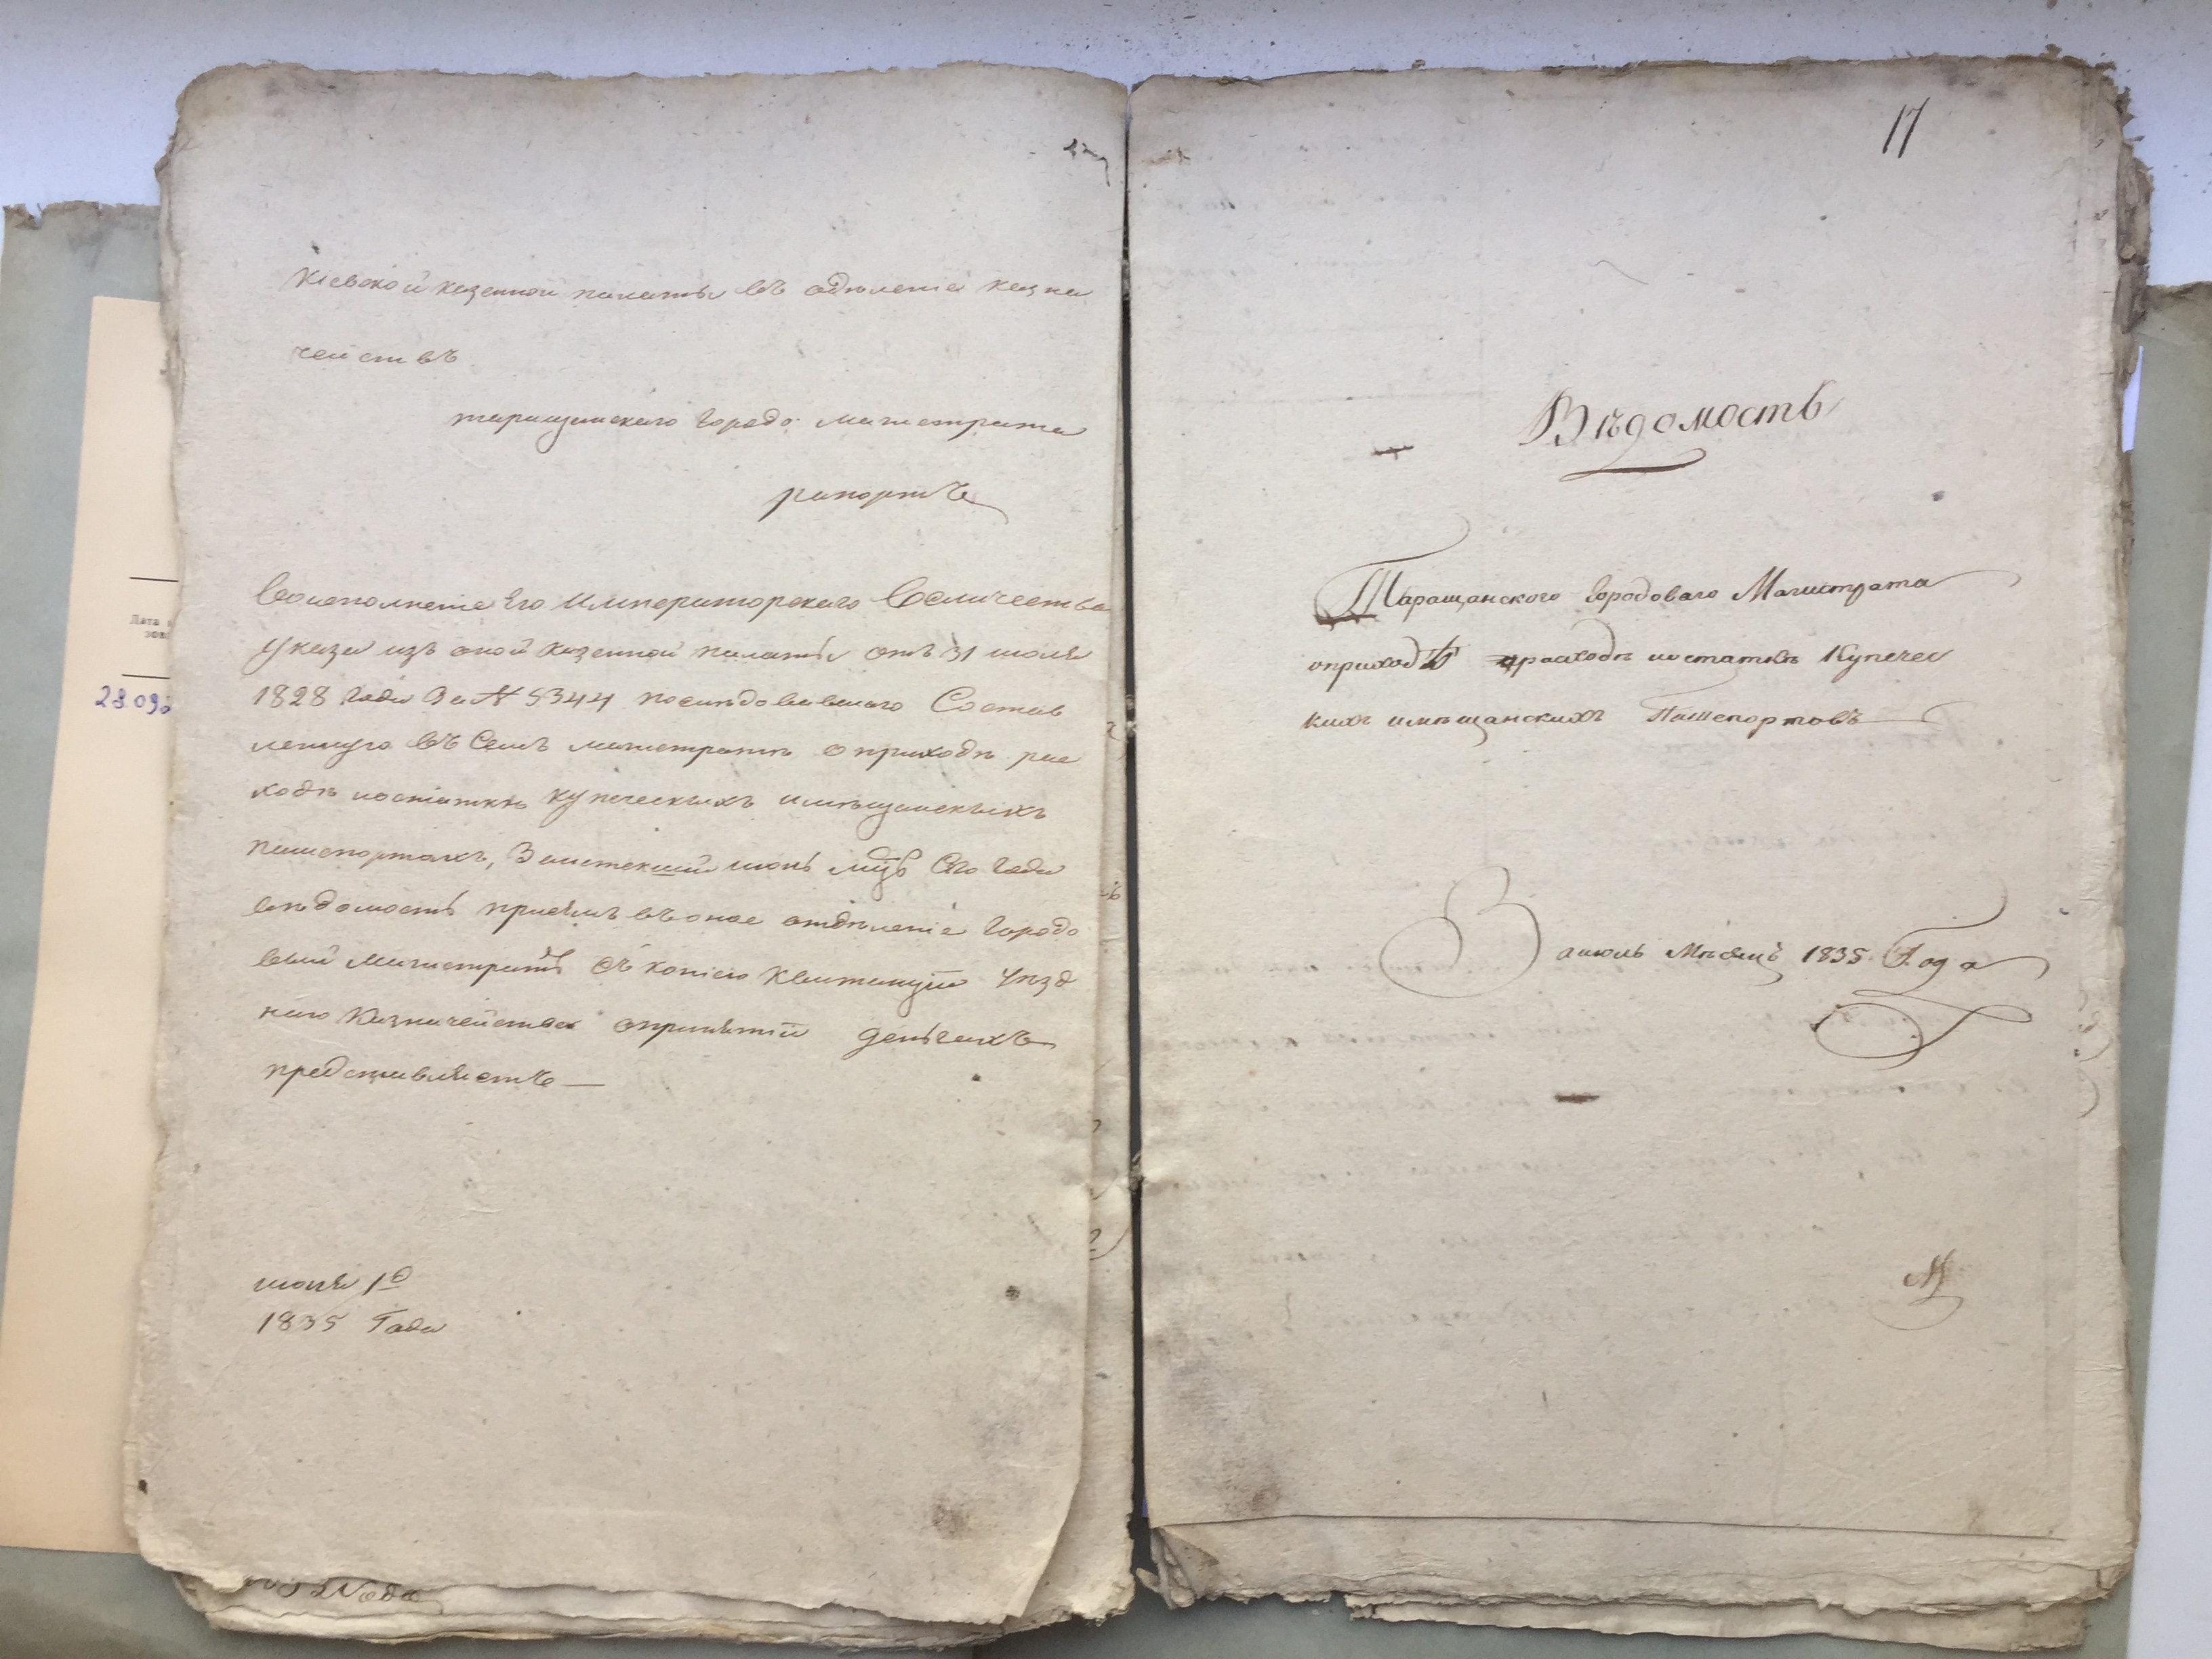 Кіевской казенной палаты въ одѣленіе казна
чействъ
таращанскаго Городо: магистрата
рапортъ
Воисполненіе Его Императорскаго Величества
указа изъ оной казенной палаты отъ 31 июля
1828 Года За № 5344 последовавшаго Состав
ленную въ Семъ магистратѣ о приходѣ рас
ходѣ иостаткѣ купеческихъ имѣщанскихъ
пашпортахъ, Заистекший июнь мцъ Сего Года
вѣдомость приемъ въоное отдѣленіе Городо
вый магистратъ съ копіею Квитанціи Уѣзд
наго Казначейства опринятіи деньгахъ
представляетъ —
июля 1д
1835 Года
17
Вѣдомость
Таращанского Городоваго Магистрата
оприходѣ расходѣ иостаткѣ Купечес
кихъ имѣщанскихъ Пашепортовъ
За июль Мѣсяцъ 1835 Года
28.09
Дата